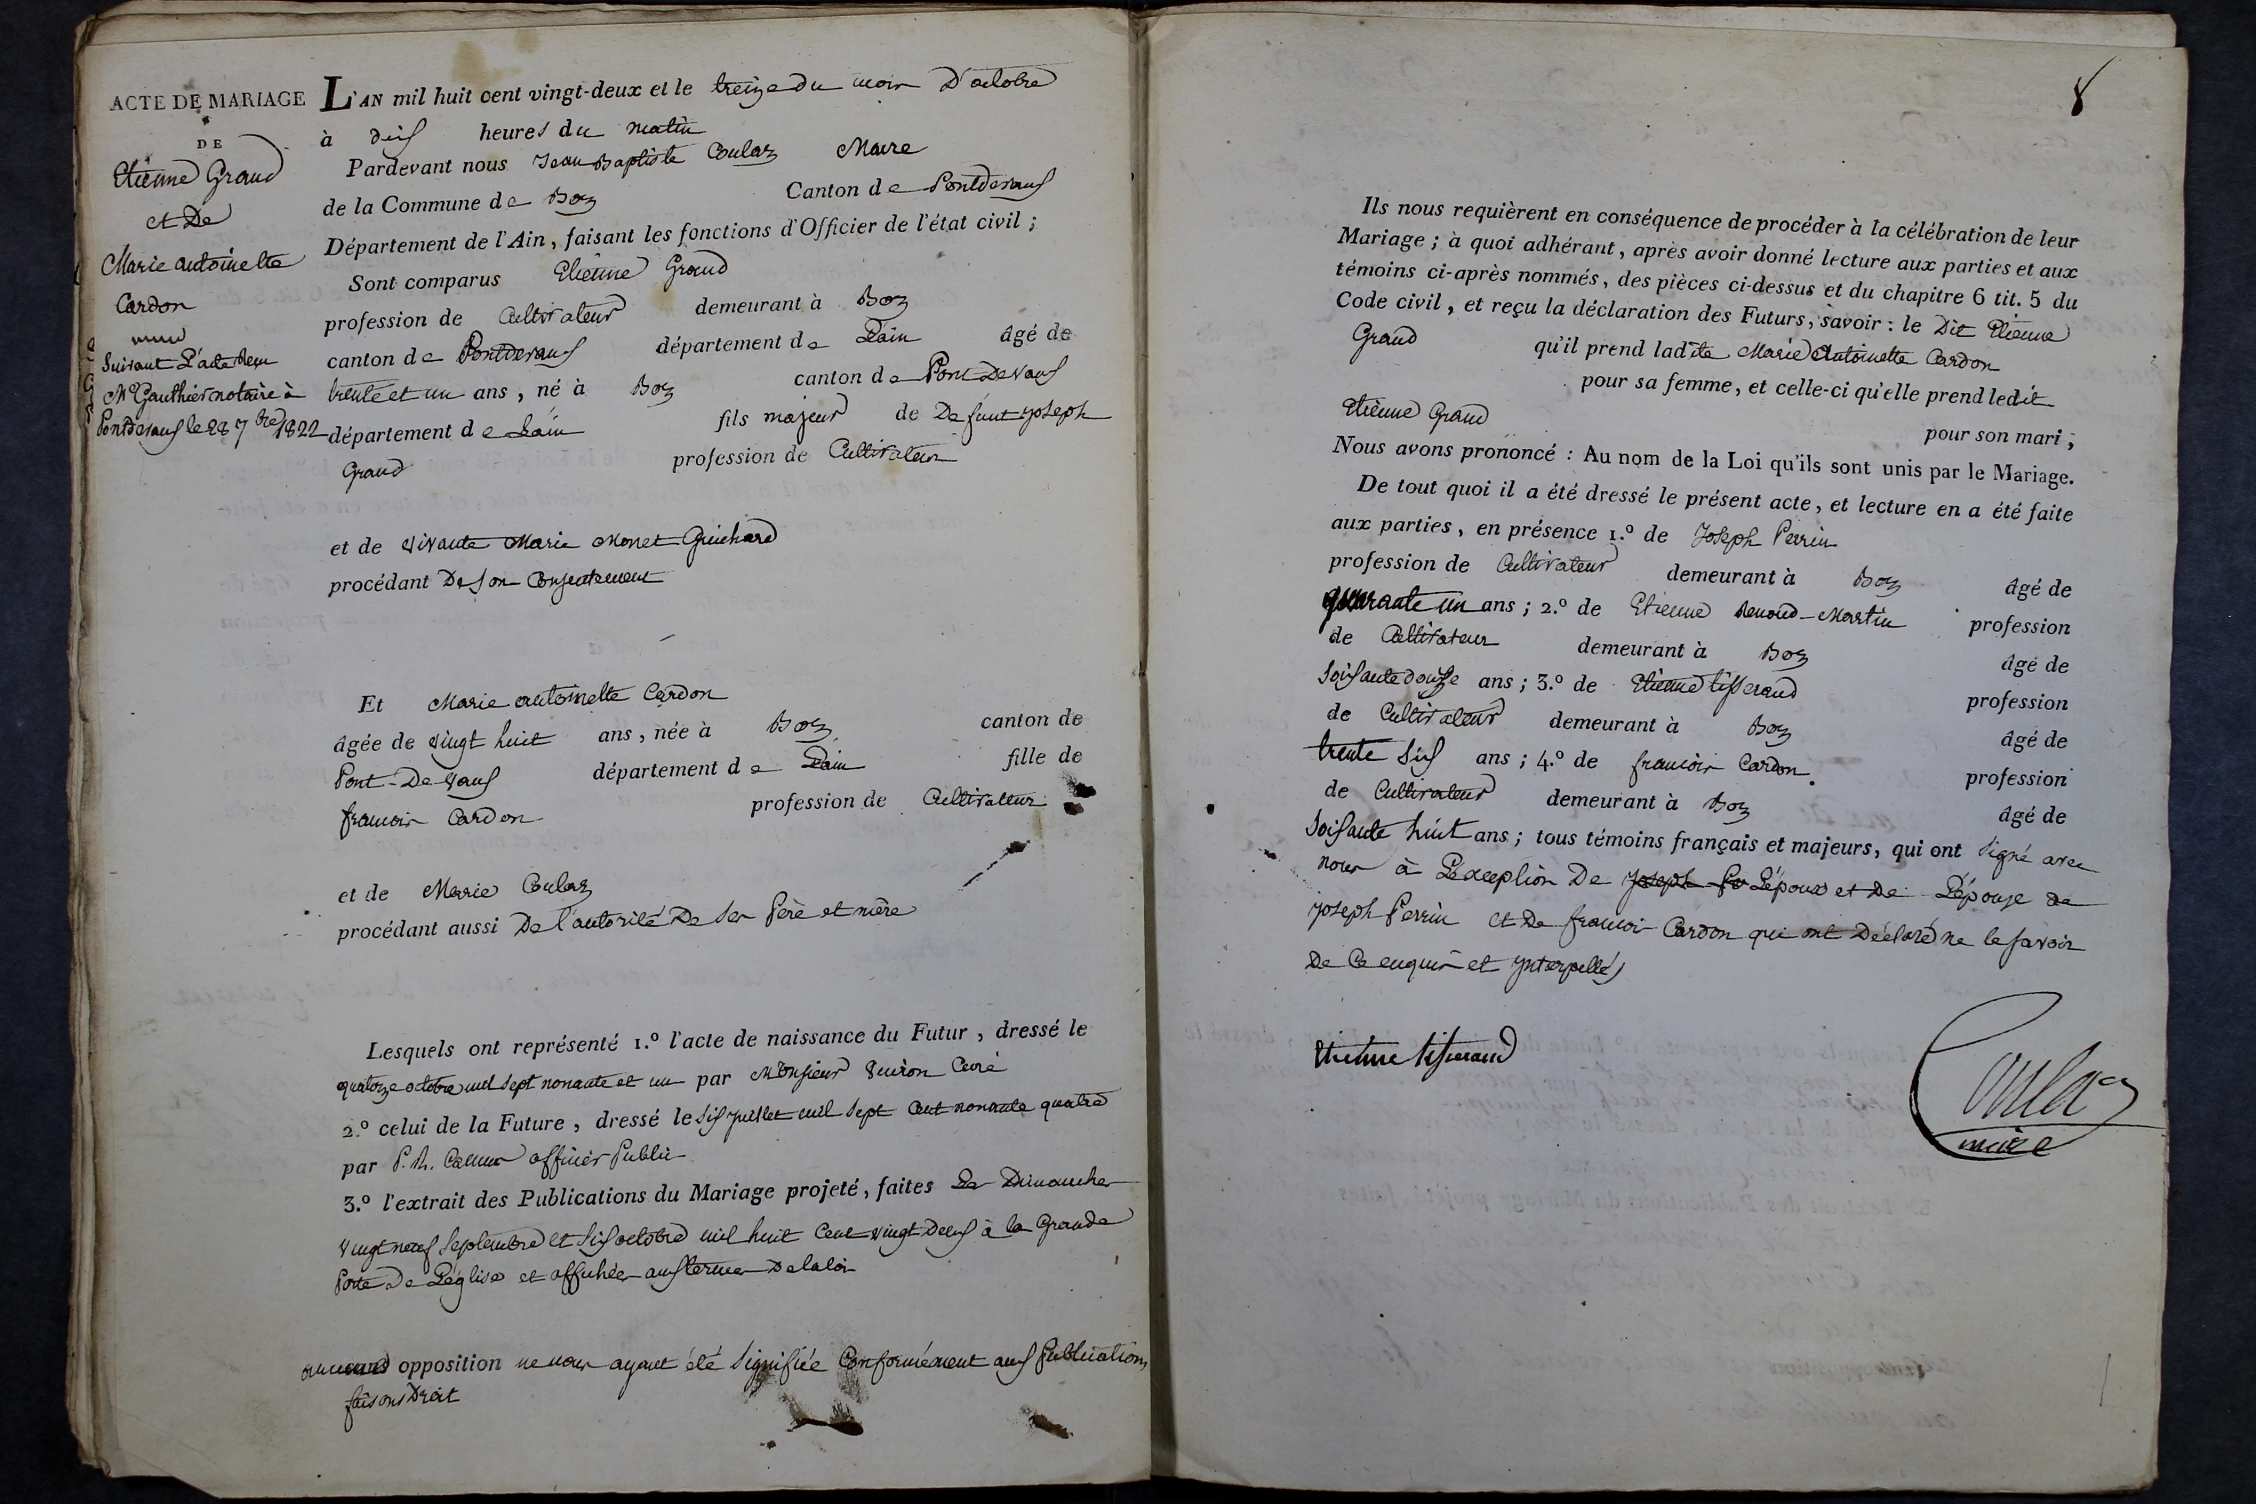 ACTE DE MARIAGE
DE
Etienne Grand
et De
Marie antoinette
Cardon
suivant L'acte Reçu
Mr Gauthier notaire à
Pontdevaux le 28 7bre 1822
L'AN mil huit cent vingt-deux et le treize du mois D'octobre
à dix heures du matin
Pardevant nous Jean Baptiste Coulaz Maire
de la Commune de Boz Canton de Pontdevaux
Département de l'Ain, faisant les fonctions d'Officier de l'état civil;
Sont comparus Etienne Grand
profession de Cultivateur demeurant à Boz
canton de Pontdevaux département de L'ain âgé de
trente et un ans, né à Boz canton de Pont-De-Vaux
département de L'ain fils majeur de Defunt joseph
Grand profession de Cultivateur
et de vivante Marie Monet Guichard
procédant De son Consentement
Et Marie antoinette Cardon
âgée de vingt huit ans, née à Boz canton de
Pont-De-Vaux département de L'ain fille de
francois Cardon profession de Cultivateur
et de Marie Coulaz
procédant aussi De l'autorité De ses Père et mère
Lesquels ont représenté 1.º l'acte de naissance du Futur, dressé le
quatorze octobre mil sept nonante et un par Monsieur Curé
2.º celui de la Future, dressé le six juillet mil sept Cent nonante quatre
par P. h. officier Public
3.º l'extrait des Publications du Mariage projeté, faites Les Dimanches
vingt neuf Septembre et six octobre mil huit Cent vingt Deux à la Grande
Porte De L'église et affichées aux termes De la loi
aucune opposition ne nous ayant été signifiée Conformément aux Publications
faisons Droit
8
Ils nous requièrent en conséquence de procéder à la célébration de leur
Mariage; à quoi adhérant, après avoir donné lecture aux parties et aux
témoins ci-après nommés, des pièces ci-dessus et du chapitre 6 tit. 5 du
Code civil, et reçu la déclaration des Futurs, savoir: le Dit Etienne
Grand qu'il prend ladite Marie Antoinette Cardon
pour sa femme, et celle-ci qu'elle prend ledit
Etienne Grand pour son mari;
Nous avons prononcé: Au nom de la Loi qu'ils sont unis par le Mariage.
De tout quoi il a été dressé le présent acte, et lecture en a été faite
aux parties, en présence 1.º de Joseph Perrin
profession de Cultivateur demeurant à Boz âgé de
quarante un ans; 2.º de Etienne Renoud-Martin profession
de Cultivateur demeurant à Boz âgé de
soixante douze ans; 3.º de Etienne tisserand profession
de Cultivateur demeurant à Boz âgé de
trente six ans; 4.º de francois Cardon profession
de Cultivateur demeurant à Boz âgé de
soixante huit ans; tous témoins français et majeurs, qui ont signé avec
nous à L'exception De joseph L'époux et De L'épouse de
joseph Perrin et De francois Cardon qui ont Déclaré ne le savoir
De Ce enquis et ynterpellés
Etienne tisserand
Coulaz
maire